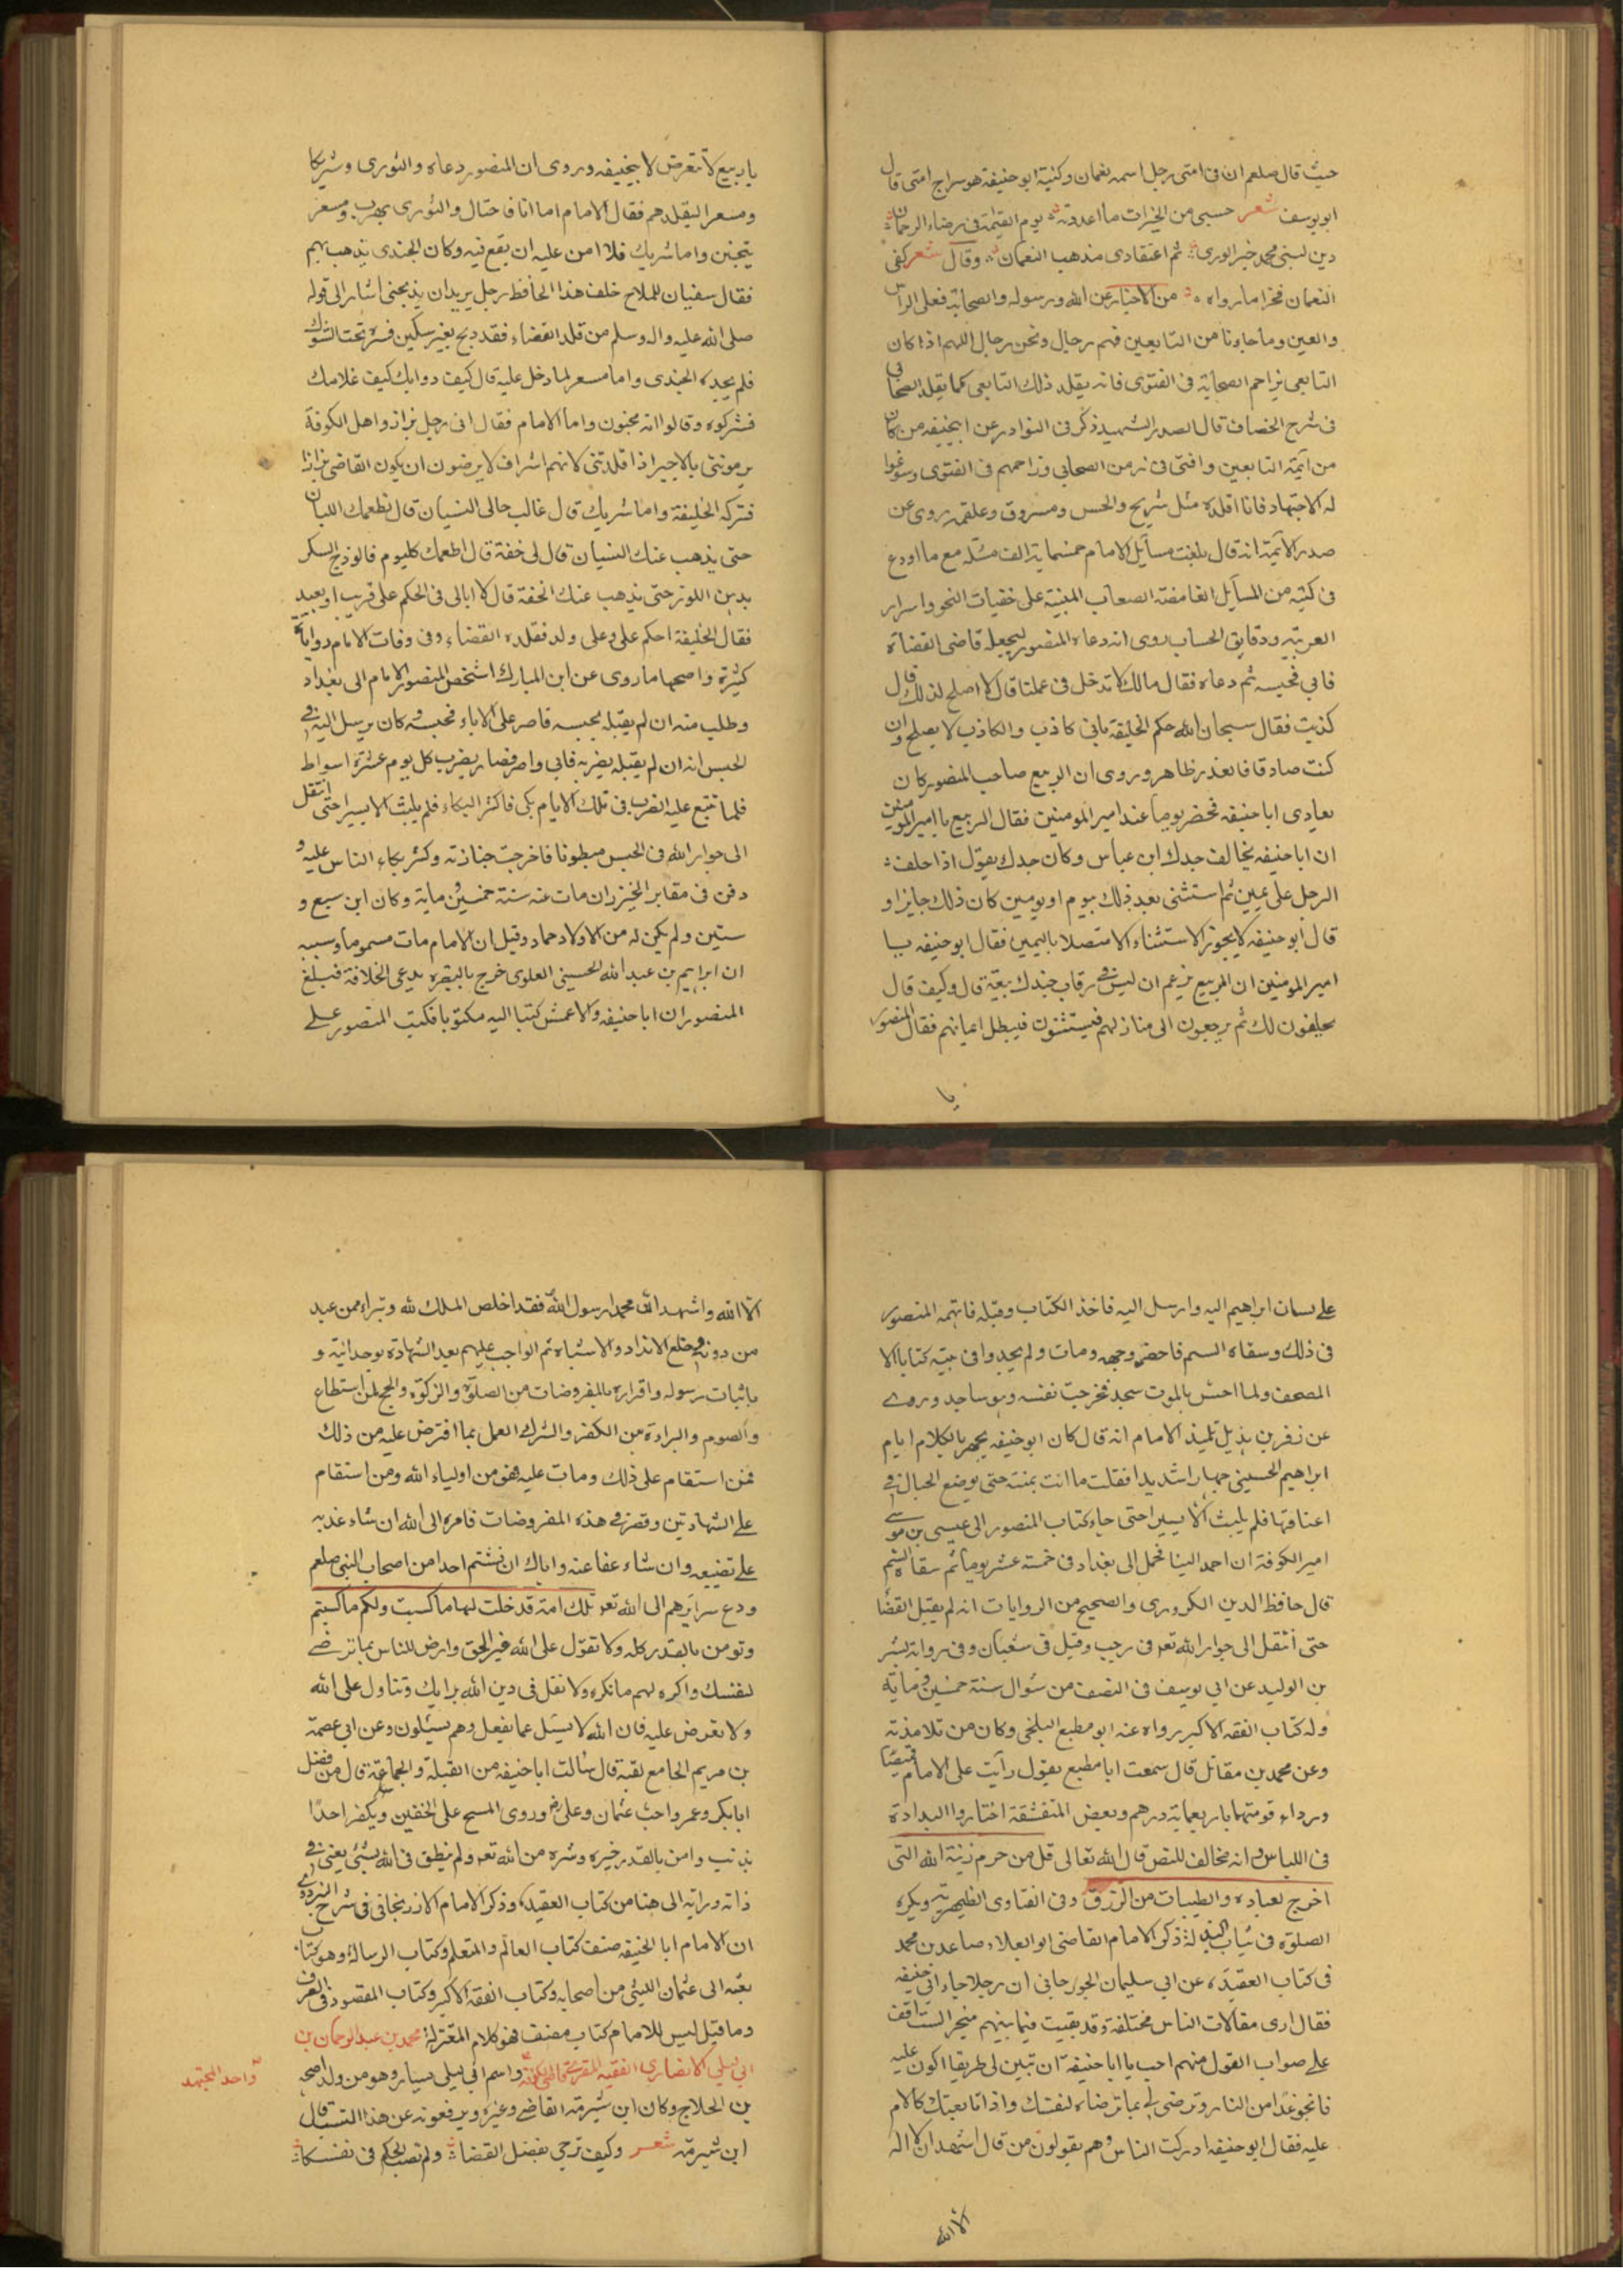 حيث قال صلعم ان فى امتى رجل اسمه نعمان وكنيته ابو حنيفة هو سراج امتى قال
ابو يوسف شعر حسبى من الخيرات ما اعددته يوم القيمة فى رضاء الرحمان
دين لنبى محمد خير الورى ثم اعتقادى مذهب النعمان وقال شعر كفى
النعمان فخرا ما رواه من الاخبار عن الله ورسوله والصحابة فعلى الراس
والعين وما جاءنا من التابعين فهم رجال ونحن رجال اللهم اذا كان
التابعى يزاحم الصحابة فى الفتوى فانه يقلد ذلك التابعى كما يقلد الصحابى
فى شرح الخصاف قال الصدر الشهيد ذكر فى النوادر عن ابيحنيفه من كان
من ائمة التابعين وافتى فى زمن الصحابى وزاحمهم فى الفتوى وسوغوا
له الاجتهاد فانا اقلده مثل شريح والحسن ومسروق وعلقمه روى عن
صدر الائمة انه قال بلغت مسائل الامام خمسمايه الف مسئله مع ما اودع
فى كتبه من المسائل الغامضة الصعاب المبنية على خفيات النحو واسرار
العربيه ودقايق الحساب روى انه دعاه المنصور ليجعله قاضى القضاة
فابى فحبسه ثم دعاه فقال مالك لا تدخل فى عملنا قال لا اصلح لذلك قال
كذبت فقال سبحان الله حكم الخليفة بانى كاذب والكاذب لا يصلح وان
كنت صادقا فالعذر ظاهر وروى ان الربيع صاحب المنصور كان
يعادى ابا حنيفه فحضر يوما عند امير المومنين فقال الربيع يا امير المومنين
ان ابا حنيفه يخالف جدك ابن عباس وكان جدك يقول اذا حلف
الرجل على يمين ثم استثنى بعد ذلك بيوم او يومين كان ذلك جايزا و
قال ابو حنيفه لا يجوز الاستثناء الا متصلا باليمين فقال ابو حنيفه يا
امير المومنين ان الربيع يزعم ان ليس فى رقاب جندك بيعة قال وكيف قال
يحلفون لك ثم يرجعون الى منازلهم فيستثنون فيبطل ايمانهم فقال المنصور
يا
يا ربيع لا تتعرض لابيحنيفه وروى ان المنصور دعاه والثورى وشريكا
ومسعر اليقلدهم فقال الامام اما انا فاحتال والثورى يهرب ومسعر
يتجنن واما شريك فلا امن عليه ان يقع فيه وكان الجندى يذهب بهم
فقال سفيان للملاح خلف هذا الحافظ رجل يريد ان يذبحنى اشار الى قوله
صلى الله عليه واله وسلم من قلد القضاء فقد ذبح بغير سكين فستره تحت الشوك
فلم يجده الجندى واما مسعر لما دخل عليه قال كيف دوابك كيف غلامك
فتركوه وقالوا انه مجنون واما الامام فقال انى رجل بزاز واهل الكوفة
يرموننى بالاجير اذا قلدتنى لانهم اشراف لا يرضون ان يكون القاضى بزازا
فتركه الخليفة واما شريك قال غالب حالى النسيان قال نطعمك اللبان
حتى يذهب عنك النسيان قال لى خفة قال اطعمك كل يوم فالوذج السكر
بدهن اللوز حتى يذهب عنك الخفة قال لا ابالى فى الحكم على قريب او بعيد
فقال الخليفة احكم على وعلى ولد فقلده القضاء وفى وفات الامام روايات
كثيرة واصحها ما روى عن ابن المبارك اشخص المنصور الامام الى بغداد
وطلب منه ان لم يقبله يحبسه فاصر على الاباء فحبسه وكان يرسل اليه فى
الحبس انه ان لم يقبله يضربه فابى واصر فصار يضرب كل يوم عشرة اسواط
فلما تتبع عليه الضرب فى تلك الايام بكى فاكثر البكاء فلم يلبث الا يسيرا حتى انتقل
الى جوار الله فى الحبس مبطونا فاخرجت جنازته وكثر بكاء الناس عليه و
دفن فى مقابر الخيزران مات عنه سنة خمسين وماية وكان ابن سبع و
ستين ولم يكن له من الاولاد حماد وقيل ان الامام مات مسموما وسببه
ان ابراهيم بن عبد الله الحسينى العلوى خرج بالبصره يدعى الخلافة فبلغ
المنصور ان ابا حنيفه والاعمش كتبا اليه مكتوبا فكتب المنصور على
على لسان ابراهيم اليه وارسل اليه فاخذ الكتاب وقبله فاتهمه المنصور
فى ذلك وسقاه السم فاخضر وجهه ومات ولم يجدوا فى بيته كتابا الا
المصحف ولما احس بالموت سجد فخرجت نفسه وهو ساجد وروى
عن زفر بن هذيل تلميذ الامام انه قال كان ابو حنيفه يجهر بالكلام ايام
ابراهيم الحسينى جهارا شديدا فقلت ما انت بمنته حتى يوضع الحبال فى
اعناقها فلم يلبث الا يسيرا حتى جاء كتاب المنصور الى عيسى بن موسى
امير الكوفة ان احمد الينا فحمل الى بغداد فى خمسة عشر يوما ثم سقاه السم
قال حافظ الدين الكردرى والصحيح من الروايات انه لم يقبل القضا
حتى انتقل الى جوار الله تعه فى رجب وقيل فى شعبان وفى رواية بشر
بن الوليد عن ابى يوسف فى النصف من شوال سنة خمسين وماية
وله كتاب الفقه الاكبر رواه عنه ابو مطيع البلخى وكان من تلامذته
وعن محمد بن مقاتل قال سمعت ابا مطيع يقول رأيت على الامام قميصا
ورداء قومتهما باربعماية درهم وبعض المتقشفة اختاروا البدادة
فى اللباس وانه مخالف للنص قال الله تعالى قل من حرم زينة الله التى
اخرج لعباده والطيبات من الرزق وفى الفتاوى الظهيرية ويكره
الصلوة فى ثياب البذلة ذكر الامام القاضى ابو العلاء صاعد بن محمد
فى كتاب العقيدة عن ابى سليمان الجورجانى ان رجلا جاء ابى حنيفه
فقال ارى مقالات الناس مختلفة وقد بقيت فيما بينهم متحير الست اقف
على صواب القول منهم احب يا ابا حنيفة ان تبين لى طريقا اكون عليه
فانجو غدا من النار وترضى لى بما ترضاه لنفسك واذا تابعتك كالام
عليه فقال ابو حنيفه ادركت الناس وهم يقولون من قال اشهد ان لا اله
الا الله
الا الله واشهد ان محمدا رسول الله فقد اخلص الملك لله وتبراء ممن عبد
من دونه وخلع الانداد والاشباه ثم الواجب عليهم بعد الشهادة بوحدانيته و
باثبات رسوله واقراره بالمفروضات من الصلوة والزكوة والحج لمن استطاع
والصوم والبرادة من الكفر والشرك العمل بما افترض عليه من ذلك
فمن استقام على ذلك ومات عليه فهو من اولياء الله ومن استقام
على الشهادتين وقصر فى هذه المفروضات فامره الى الله ان شاء عذبه
على تضييعه وان شاء عفا عنه واياك ان تشتم احدا من اصحاب النبى صلعم
ودع سرايرهم الى الله تعه تلك امة قد خلت لها ما كسبت ولكم ما كسبتم
وتومن بالقدر كله ولا تقول على الله غير الحق وارض للناس بما ترضى
لنفسك واكره لهم ما تكره ولا تقل فى دين الله برايك وتتاول على الله
ولا تعرض عليه فان الله لا يسئل عما يفعل وهم يسئلون وعن ابى عصمة
بن مريم الجامع لقبه قال سالت ابا حنيفه من القبلة والجماعة قال من فضل
ابا بكر وعمر واحب عثمان وعلى وروى المسح على الخفين ويكفر احدا
بذنب وامن بالقدر خيره وشره من الله تعه ولم ينطق فى الله بشئ يعنى فى
ذاته ورايه الى هنا من كتاب العقيدة وذكر الامام الازرنجانى فى شرح البزدوى
ان الامام ابا الحنيفه صنف كتاب العالم والمتعلم وكتاب الرسالة وهو كتاب
بعثه الى عثمان الليثى من اصحابه وكتاب الفقه الاكبر وكتاب المقصود فى الصرف
وما قيل ليس للامام كتاب مصنف فهو كلام المعتزلة محمد بن عبد الرحمان بن
ابى ليلى الانصارى الفقيه المقرى قاضى الكوفة واسم ابى ليلى يسار وهو من ولد احيحه
واحد المجتهد
بن الحلاج وكان ابن شبرمة القاضى وغيره ويرفعونه عن هذا النسب قال
ابن شبرمة شعر وكيف ترجى بفضل القضاء ولم تصب الحكم فى نفسكا